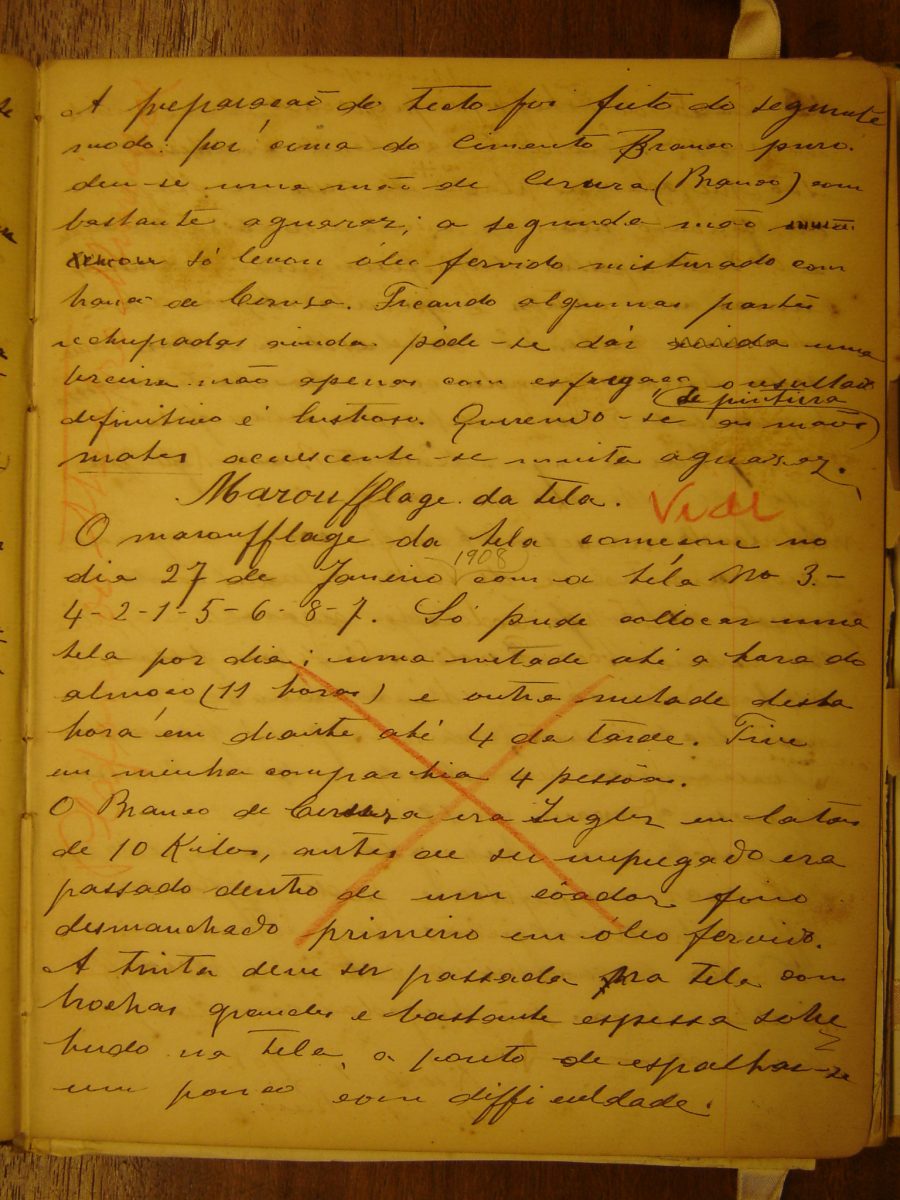 A preparação do tecto foi feito do seguinte
modo: por cima do Cimento Branco puro.
deu-se uma mão de Ceruza (Branco) com
bastante aguaraz; a segunda mão
só levou óleo fervido misturado com
de Ceruza. Ficando algumas partes
rechupadas ainda póde-se dár uma
terceira mão apenas com esfregaço o resultado
definitivo é lustroso. Querendo-se as mãos
de pintura
mates accrescente-se muita aguaraz.
Maroufflage da tela. Vide
O maroufflage da tela começou no
dia 27 de Janeiro 1908 com a téla No 3.-
4-2-1-5-6-8-7. Só pude collocar uma
tela por dia; uma metade até a hora do
almoço (11 horas) e outra metade desta
hora em diante até 4 da tarde. Tive
em minha companhia 4 pessôas.
O Branco de Ceruza era Inglez em latas
de 10 Kilos, antes de ser empregado era
passado dentro de um côador fino
desmanchado primeiro em óleo fervido.
A tinta deve ser passada na tela com
brochas grandes e bastante espessa sobre
tudo na tela, a ponto de espalhar-se
um pouco com difficuldade.